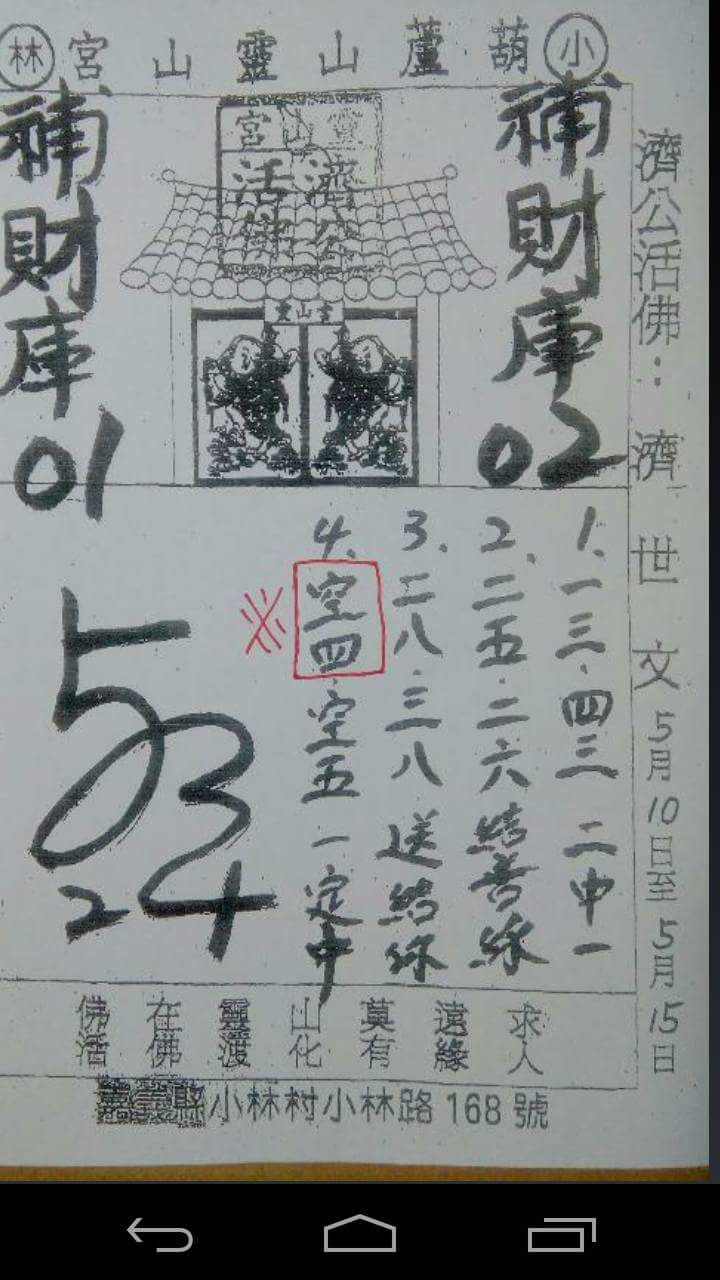 小葫蘆山靈山宮林
濟公活佛：濟世文5月10日至5月15日
補財庫02
靈山宮
濟公活佛
補財庫01
1、一三．四三 二中一
2、二五．二六 結善緣
3、二八．三八 送結緣
4、空四．空五 一定中
※
53
24
佛在靈山莫遠求
活佛渡化有緣人
嘉義縣小林村小林路168號